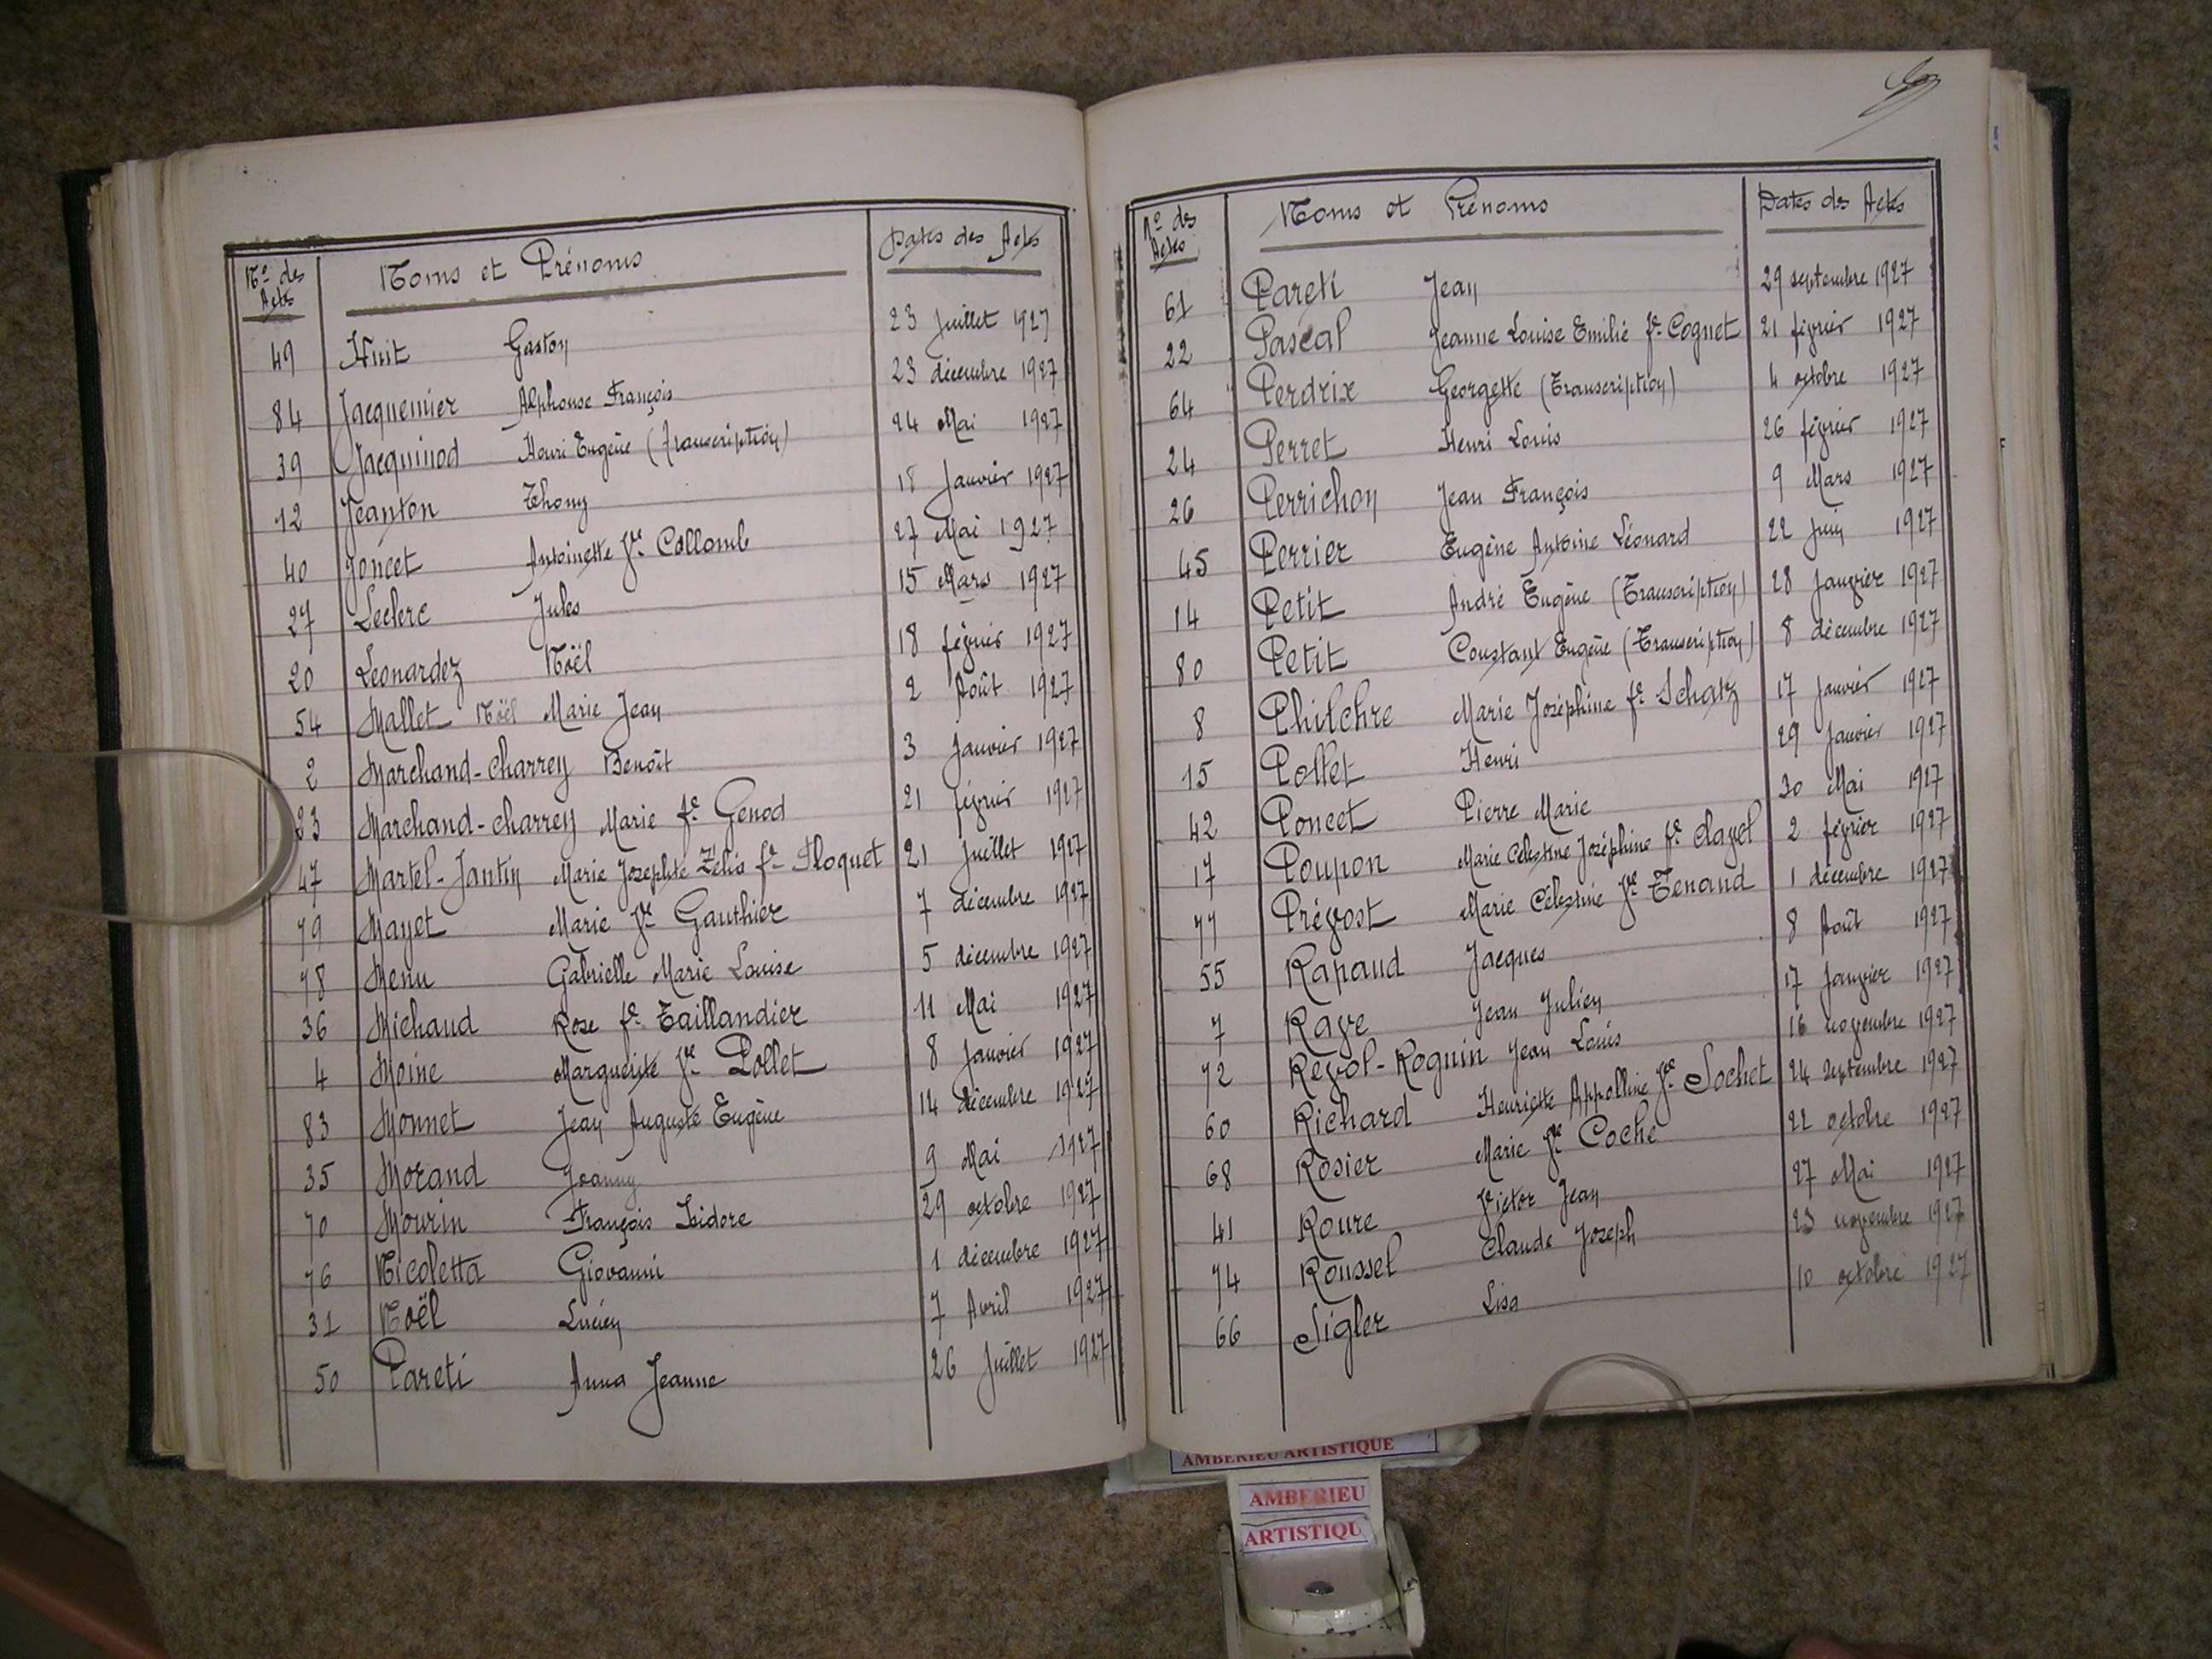 Nos des Actes Noms et Prénoms Dates des Actes
49 Huit Gaston 23 Juillet 1927
84 Jacquemier Alphonse François 23 décembre 1927
39 Jacquinod Henri Eugène (Transcription) 24 Mai 1927
12 Jeanton Thony 18 Janvier 1927
40 Joncet Antoinette Vve Collomb 27 Mai 1927
27 Leclerc Jules 15 Mars 1927
20 Léonardez Noël 18 février 1927
54 Mallet Noël Marie Jean 2 Août 1927
2 Marchand-Charrey Benoît 3 Janvier 1927
23 Marchand-Charrey Marie fe Genod 21 février 1927
47 Martel-Jantin Marie Josephte Zélia fe Floquet 21 Juillet 1927
79 Mayet Marie Vve Gauthier 7 décembre 1927
78 Menu Gabrielle Marie Louise 5 décembre 1927
36 Michaud Rose fe Taillandier 11 Mai 1927
4 Moine Marguerite Vve Pollet 8 Janvier 1927
83 Monnet Jean Auguste Eugène 14 décembre 1927
35 Morand Joanny 9 Mai 1927
70 Mourin François Isidore 29 octobre 1927
76 Nicoletta Giovanni 1 décembre 1927
31 Noël Lucien 7 Avril 1927
50 Pareti Anna Jeanne 26 Juillet 1927
Nos des Actes Noms et Prénoms Dates des Actes
61 Pareti Jean 29 septembre 1927
22 Pascal Jeanne Louise Emilie fe Cognet 21 février 1927
64 Perdrix Georgette (Transcription) 4 octobre 1927
24 Perret Henri Louis 26 février 1927
26 Perrichon Jean François 9 Mars 1927
45 Perrier Eugène Antoine Léonard 22 Juin 1927
14 Petit André Eugène (Transcription) 28 Janvier 1927
80 Petit Constant Eugène (Transcription) 8 décembre 1927
8 Philchre Marie Joséphine fe Schatz 17 Janvier 1927
15 Pollet Henri 29 Janvier 1927
42 Poncet Pierre Marie 30 Mai 1927
17 Poupon Marie Célestine Joséphine fe Clayel 2 février 1927
77 Prévost Marie Célestine Vve Tenand 1 décembre 1927
55 Rapaud Jacques 8 Août 1927
7 Rave Jean Julien 17 Janvier 1927
72 Revol-Roguin Jean Louis 16 novembre 1927
60 Richard Henriette Appolline Vve Sochet 24 Septembre 1927
68 Rosier Marie Vve Coche 22 octobre 1927
41 Roure Victor Jean 27 Mai 1927
74 Roussel Claude Joseph 23 novembre 1927
66 Sigler Lisa 10 octobre 1927
AMBERIEU ARTISTIQUE
AMBERIEU
ARTISTIQU